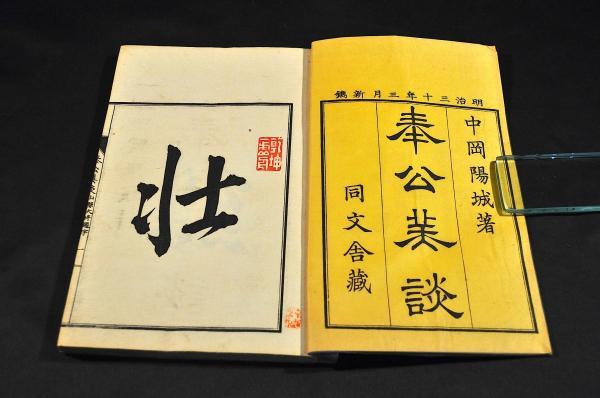 明治三十年三月新鐫
中岡陽城著
奉公美談
同文舎藏
壮